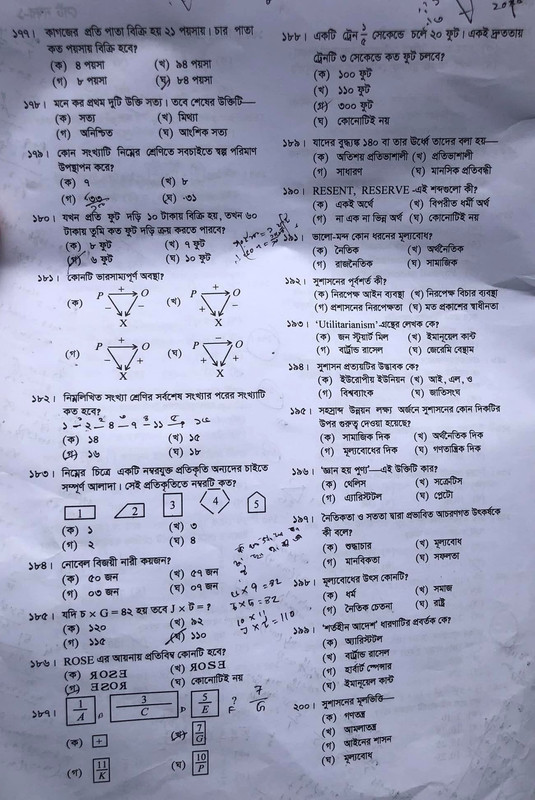 ১৭৭। কাগজের প্রতি পাতা বিক্রি হয় ২১ পয়সায়। চার পাতা
কত পয়সায় বিক্রি হবে?
(ক) ৪ পয়সা (খ) ৯৪ পয়সা
(গ) ৮ পয়সা (ঘ) ৮৪ পয়সা
১৭৮। মনে কর প্রথম দুটি উক্তি সত্য। তবে শেষের উক্তিটি—
(ক) সত্য (খ) মিথ্যা
(গ) অনিশ্চিত (ঘ) আংশিক সত্য
১৭৯। কোন সংখ্যাটি নিম্নের শ্রেণিতে সবচাইতে স্বল্প পরিমাণ
উপস্থাপন করে?
(ক) ৭ (খ) ৮
(গ) (ঘ) -৩১
১৮০। যখন প্রতি ফুট দড়ি ১০ টাকায় বিক্রি হয়, তখন ৬০
টাকায় তুমি কত ফুট দড়ি ক্রয় করতে পারবে?
(ক) ৮ ফুট (খ) ৭ ফুট
(গ) ৬ ফুট (ঘ) ১০ ফুট
১৮১। কোনটি ভারসাম্যপূর্ণ অবস্থা?
(ক) P + O − − X (খ) P + O − + X
(গ) P + O + X (ঘ) P + + X
১৮২। নিম্নলিখিত সংখ্যা শ্রেণির সর্বশেষ সংখ্যার পরের সংখ্যাটি
কত হবে?
(ক) ১৪ (খ) ১৫
(গ) ১৬ (ঘ) ১৮
১৮৩। নিম্নের চিত্রে একটি নম্বরযুক্ত প্রতিকৃতি অন্যদের চাইতে
সম্পূর্ণ আলাদা। সেই প্রতিকৃতিতে নম্বরটি কত?
1 2 3 4 5
(ক) ১ (খ) ৩
(গ) ২ (ঘ) ৪
১৮৪। নোবেল বিজয়ী নারী কয়জন?
(ক) ৫০ জন (খ) ৫৭ জন
(গ) ৩৩ জন (ঘ) ৩৭ জন
১৮৫। যদি ৮ × G = 8২ হয় তবে J × t = ?
(ক) ১২০ (খ) ৯২
(গ) ১১৫ (ঘ) ১১০
১৮৬। ROSE এর আয়নায় প্রতিবিম্ব কোনটি হবে?
(ক) (খ)
(গ) (ঘ) কোনোটিই নয়
১৮৭। 1 A 3 C 5 E ? F 7 G
(ক) + (খ) 7 G
(গ) 11 K (ঘ) 10 P
১৮৮। একটি ট্রেন 1/৫ সেকেন্ডে চলে ২০ ফুট। একই দ্রুততায়
ট্রেনটি ৩ সেকেন্ডে কত ফুট চলবে?
(ক) ১০০ ফুট
(খ) ১১০ ফুট
(গ) ৩০০ ফুট
(ঘ) কোনোটিই নয়
১৮৯। যাদের বুদ্ধ্যঙ্ক ১৪০ বা তার ঊর্ধ্বে তাদের বলা হয়—
(ক) অতিশয় প্রতিভাশালী (খ) প্রতিভাশালী
(গ) সাধারণ (ঘ) মানসিক প্রতিবন্ধী
১৯০। RESENT, RESERVE -এই শব্দগুলো কী?
(ক) একই অর্থে (খ) বিপরীত ধর্মী অর্থ
(গ) না এক না ভিন্ন অর্থ (ঘ) কোনোটিই নয়
১৯১। ভালো-মন্দ কোন ধরনের মূল্যবোধ?
(ক) নৈতিক (খ) অর্থনৈতিক
(গ) রাজনৈতিক (ঘ) সামাজিক
১৯২। সুশাসনের পূর্বশর্ত কী?
(ক) নিরপেক্ষ আইন ব্যবস্থা (খ) নিরপেক্ষ বিচার ব্যবস্থা
(গ) প্রশাসনের নিরপেক্ষতা (ঘ) মত প্রকাশের স্বাধীনতা
১৯৩। ‘Utilitarianism’-গ্রন্থের লেখক কে?
(ক) জন স্টুয়ার্ট মিল (খ) ইমানুয়েল কান্ট
(গ) বার্ট্রান্ড রাসেল (ঘ) জেরেমি বেন্থাম
১৯৪। সুশাসন প্রত্যয়টির উদ্ভাবক কে?
(ক) ইউরোপীয় ইউনিয়ন (খ) আই, এল, ও
(গ) বিশ্বব্যাংক (ঘ) জাতিসংঘ
১৯৫। সহস্রাব্দ উন্নয়ন লক্ষ্য অর্জনে সুশাসনের কোন দিকটির
উপর গুরুত্ব দেওয়া হয়েছে?
(ক) সামাজিক দিক (খ) অর্থনৈতিক দিক
(গ) মূল্যবোধের দিক (ঘ) গণতান্ত্রিক দিক
১৯৬। ‘জ্ঞান হয় পুণ্য’—এই উক্তিটি কার?
(ক) থেলিস (খ) সক্রেটিস
(গ) এ্যারিস্টটল (ঘ) প্লেটো
১৯৭। নৈতিকতা ও সততা দ্বারা প্রভাবিত আচরণগত উৎকর্ষকে
কী বলে?
(ক) শুদ্ধাচার (খ) মূল্যবোধ
(গ) মানবিকতা (ঘ) সফলতা
১৯৮। মূল্যবোধের উৎস কোনটি?
(ক) ধর্ম (খ) সমাজ
(গ) নৈতিক চেতনা (ঘ) রাষ্ট্র
১৯৯। ‘শর্তহীন আদেশ’ ধারণাটির প্রবর্তক কে?
(ক) অ্যারিস্টটল
(খ) বার্ট্রান্ড রাসেল
(গ) হার্বার্ট স্পেন্সার
(ঘ) ইমানুয়েল কান্ট
২০০। সুশাসনের মূলভিত্তি—
(ক) গণতন্ত্র
(খ) আমলাতন্ত্র
(গ) আইনের শাসন
(ঘ) মূল্যবোধ